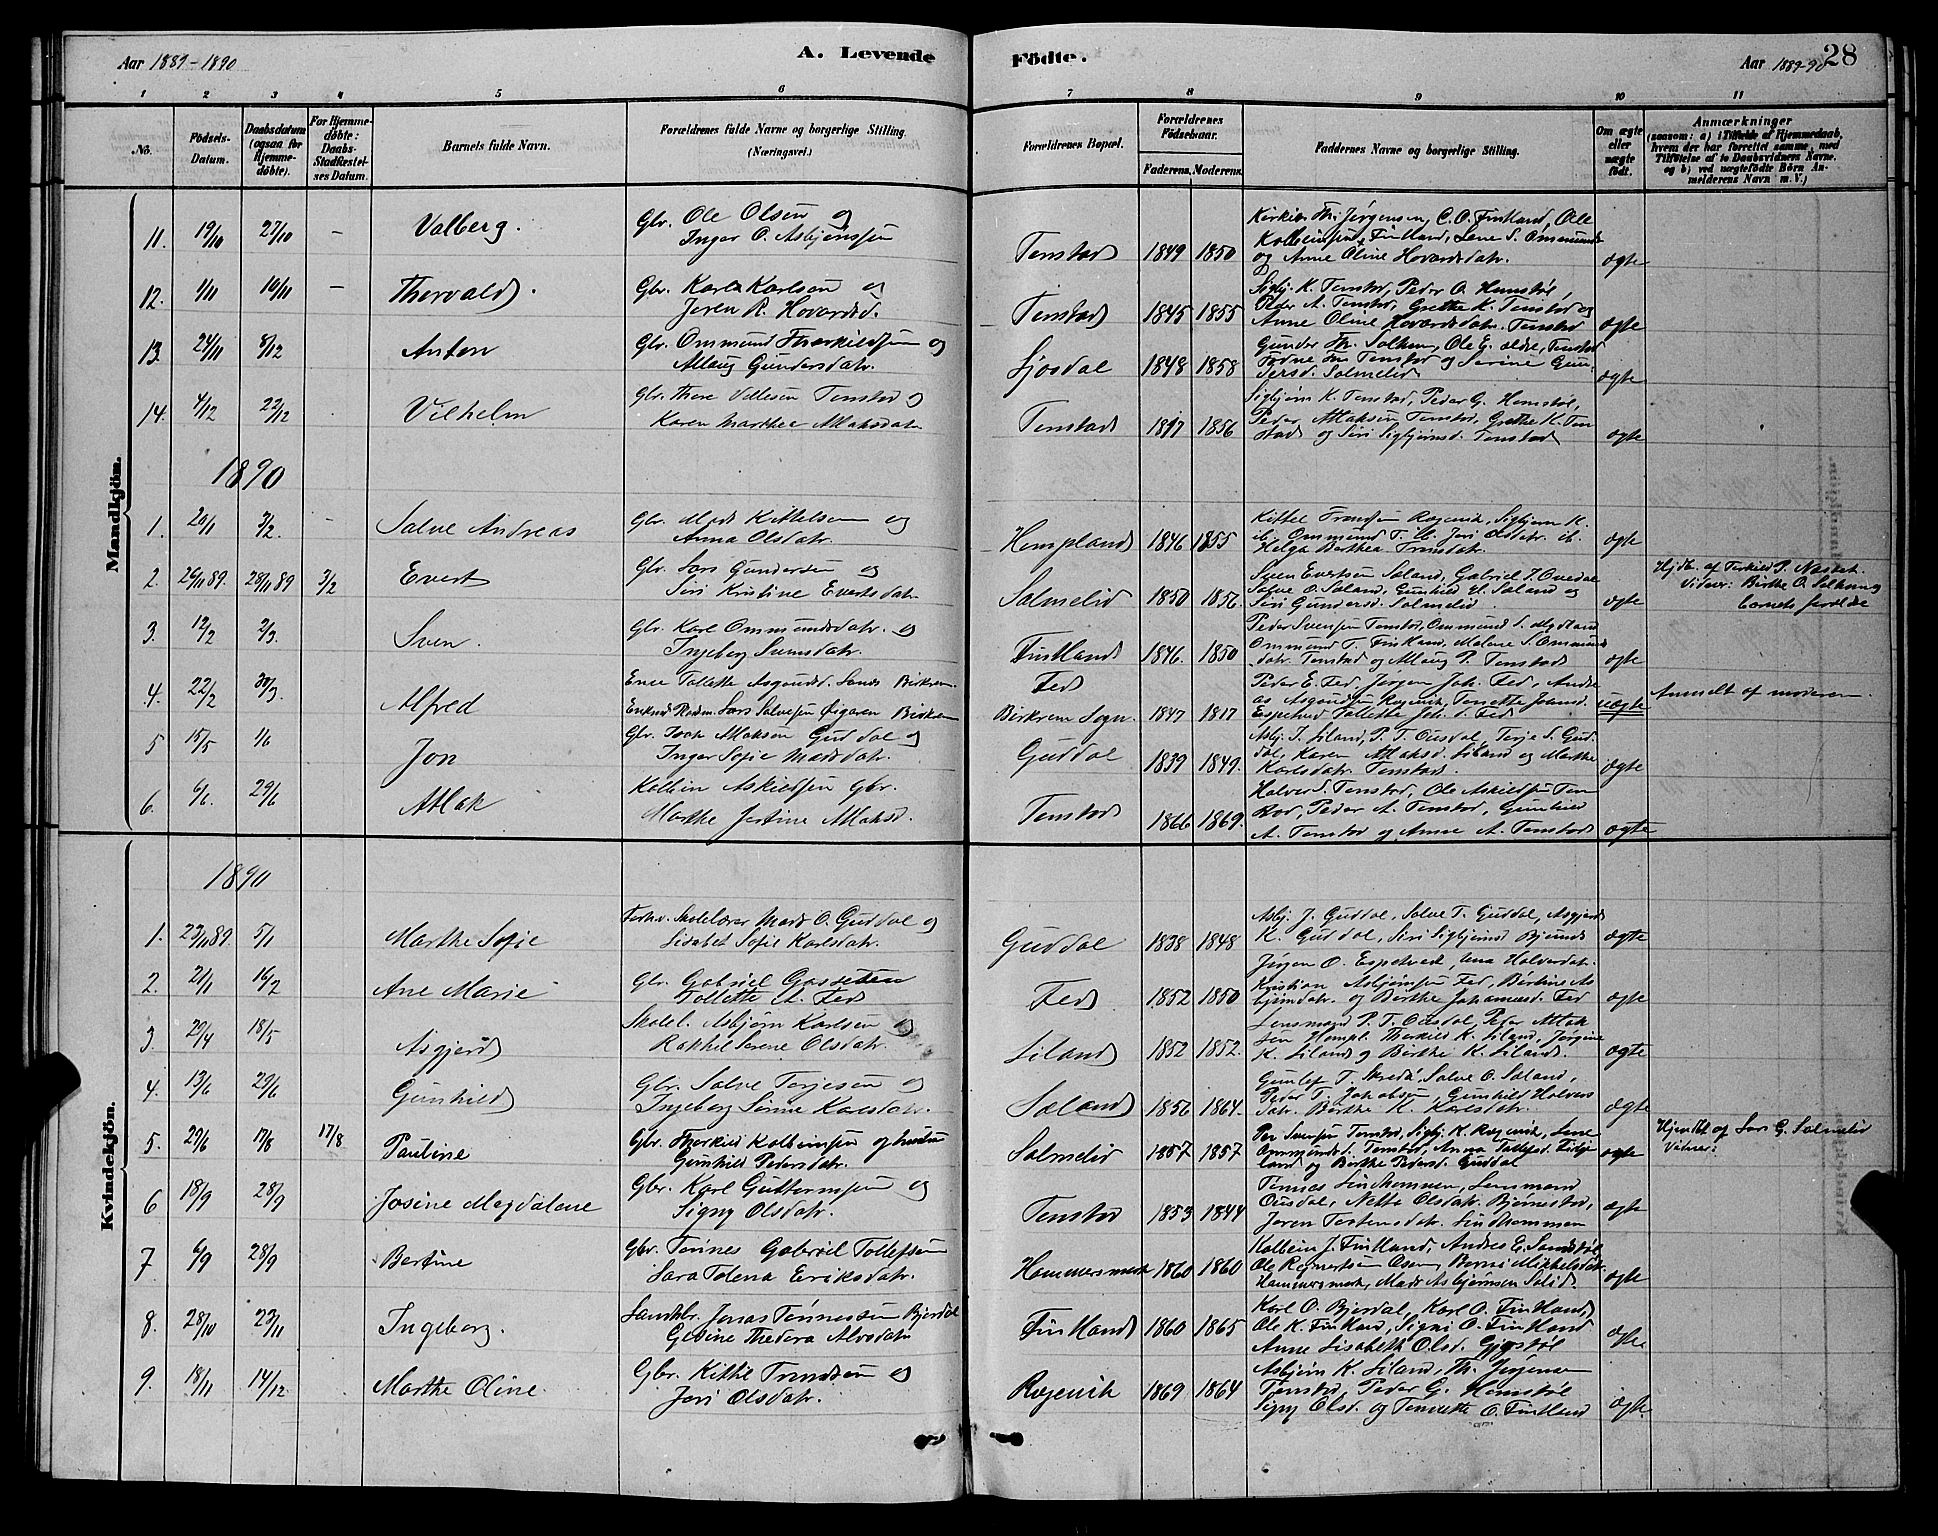 Aar 1889-1890
A. Levende
Födte.
Aar 1889-90
28
1 2 3 4 5 6 7 8 9 10 11
No.
Födsels-Datum.
Daabsdatum (ogsaa for Hjemmedöbte).
For Hjemmedöbte: Daabs-Stadfæstelses Datum.
Barnets fulde Navn.
Forældrenes fulde Navne og borgerlige Stilling.
(Næringsvei.)
Forældrenes Bopæl.
Forældrenes Födselsaar.
Faderens. Moderens.
Faddernes Navne og borgerlige Stilling.
Om ægte eller uægte födt.
Anmærkninger
(saasom: a) i Tilfælde af Hjemmedaab,
hvem der har forrettet samme, med
Tilföielse af to Daabsvidners Navne.
og b) ved uægtefödte Börn An-
melderens Navn m. V.)
Mandkjön.
11. 19/10 27/10 - Valberg. Gbr. Ole Olsen og
Inger O. Asbjørnsen
Tonstad 1849 1850 Kirkes. Th. Jørgensen, C. O. Fintland, Ole
Kolbeinsen Fintland, Lene S. Ommunds
og Anne Oline Hovardsdatr. ægte
12. 1/11 10/11 - Thorvald. Gbr. Karl Karlsen og
Joren R. Hovardsd.
Tonstad 1845 1855 Sigbj. K. Tonstad, Peder O. Homstøl,
Peder A. Tonstad, Grethe K. Tonstad og
Anne Oline Hovardsdatr. Tonstad ægte
13. 24/11 8/12 Anton Gbr. Ommund Thorkildsen og
Atlaug Gundersdatr.
Sjosdal 1848 1858 Gunder Th. Solhom, Ole E. ældre, Tonstad
Tonstad og Serine Gun-
dersd. Salmelid ægte
14. 4/12 22/12 Vilhelm Gbr. Thore Vellesen Tonstad og
Karen Marthea Atlaksdatr.
Tonstad 1847 1856 Sigbjørn K. Tonstad, Peder G. Homstøl,
Peder Atlaksen Tonstad, Grethe K. Ton
stad og Siri Sigbjørnsd. Tonstad ægte
1890
1. 20/1 3/2. - Salve Andreas Gbr. Mads Kittelsen og
Anna Olsdatr.
Hompland 1846 1855 Kittel Trondsen Røgevik, Sigbjørn K.
ib. Ommund T. ib. Jori Olsdatr. ib.
Helga Berthea Tronsdatr. ægte
2. 26/11 89. 28/11 89 3/2 Evert Gbr. Lars Gundersen og
Siri Kristine Evertsdatr.
Salmelid 1850 1856 Sven Evertsen Søland, Gabriel P. Ovedal
Salve O. Søland, Gunhild H. Søland og
Siri Gundersd. Salmelid ægte
Hjdbt. af Terkild P. Næset.
Vidner: Birthe O. Solhom og
barnets forældre
3. 12/2 2/3. Sven. Gbr. Karl Ommundsdatr. og
Ingeborg Svensdatr.
Fintland 1846. 1850 Peder Svensen Tonstad, Ommund S. Mydland
Ommund T. Fintland, Malene S. Ommunds
datr. Tonstad og Atlaug P. Tonstad ægte
4. 22/2 30/3. Alfred Enke Tollette Asgoutsd. Lunds Birkrem
Enkmd. Lars Salvesen Øigaren Birkrem
Fed
Birkrem Sogn. 1847 1817 Peder E. Fed, Jørgen Joh. Fed, Andre
as Asgoutsen Røgevik, Tonette Johansd.
Espetved Tollette Joh. d. Fed uægte Anmeldt af moderen.
5 15/5 1/6 Jon Gbr. Isak Atlaksen Guddal og
Inger Sofie Madsdatr.
Guddal 1839 1849. Asbj. T. Liland, P. T. Ousdal, Terje S. Gud
dal, Karen Atlaksd. Liland og Marthe
Karlsdatr. Tonstad. ægte
6. 6/6. 29/6 Atlak Kolbein Askildsen Gbr.
Marthe Jertine Atlaksd.
Tonstad 1866 1869. Halvor S. Tonstad, Ole Askildsen Ton
stad, Peder A. Tonstad, Gunhild
A. Tonstad og Anne A. Tonstad ægte
Kvindekjön.
1890
1. 23/11 89. 5/1 Marthe Sofie Forhv. Skolelærer Mads O. Guddal og
Lisabet Sofie Karlsdatr.
Guddal 1838 1848 Asbj. J. Guddal, Salve T. Guddal, Asgjerd
K. Guddal, Siri Sigbjørnsd. Bjunes ægte
2. 2/1 16/2 Ane Marie Gbr. Gabriel Gassesen
Tollette A. Fed
Fed 1852 1850 Jørgen O. Espetved, Lena Halvordatr.
Kristian Asbjørnsen Fed, Bertine As
bjørnsdatr. og Berthe Johannesd. Fed ægte
3. 29/4 18/5 Asgjerd Skolel. Asbjørn Karlsen og
Rakhel Serene Olsdatr.
Liland 1852 1852. Lensmand P. T. Ousdal, Peder Atlak
sen Hompl. Therkild K. Liland, Jørgine
K. Liland og Berthe K. Liland. ægte
4. 13/6 29/6 Gunhild Gbr. Salve Terjesen og
Ingeborg Sørine Karlsdatr.
Søland 1856 1864. Gunlef T. Skreaa, Salve O. Søland,
Peder T. Jakobsen, Gunhild Halvors
datr. Berthe K. Karlsdatr. ægte
5. 29/6 17/8 17/8 Pauline Gbr. Thorkild Kolbeinsen og hustru
Gunhild Pedersdatr.
Salmelid 1857 1857 Per Svensen Tonstad, Sigbj. K. Røgevik, Lene
Ommundsd. Tonstad, Anna Tollefsd. Fidje
land og Birthe Pedersd. Guddal ægte
Hjemdbt. af Lars G. Salmelid
Vidner:
6 18/9 28/9 Josine Magdalene Gbr. Karl Guttormsen og
Signy Olsdatr.
Tonstad 1853 1844 Tonnes Lindhommen, Lensmand
Ousdal, Nette Olsdatr. Bjørnestad,
Joren Torkensdatr. Lindhommen ægte
7 6/9 28/9 Bertine Gbr. Tønnes Gabriel Tollefsen
Sara Tolena Eriksdatr.
Hammersmark 1860 1860 Kolbein J. Fintland, Andres E. Sandstøl
Ole Regnertsen Osen, Berni Mikkelsdatr.
Hammersmark, Mads Asbjørnsen Solid ægte
8. 28/10 23/11 Ingeborg. Landhbr. Jonas Tønnessen Bjordal
Gesine Thedora Alvsdatr.
Fintland 1860 1865 Karl O. Bjordal, Karl O. Fintland,
Ole K. Fintland, Signi O. Fintland
Anne Lisabeth Olsd. Gjystøl ægte
9. 18/11 14/12 Marthe Oline Gbr. Kittel Trondsen og
Jori Olsdatr.
Røgevik 1869 1864 Asbjørn K. Liland, Th. Jørgensen
Tonstad, Peder G. Homstøl
Signy Olsd. og Tonette O. Fintland ægte.